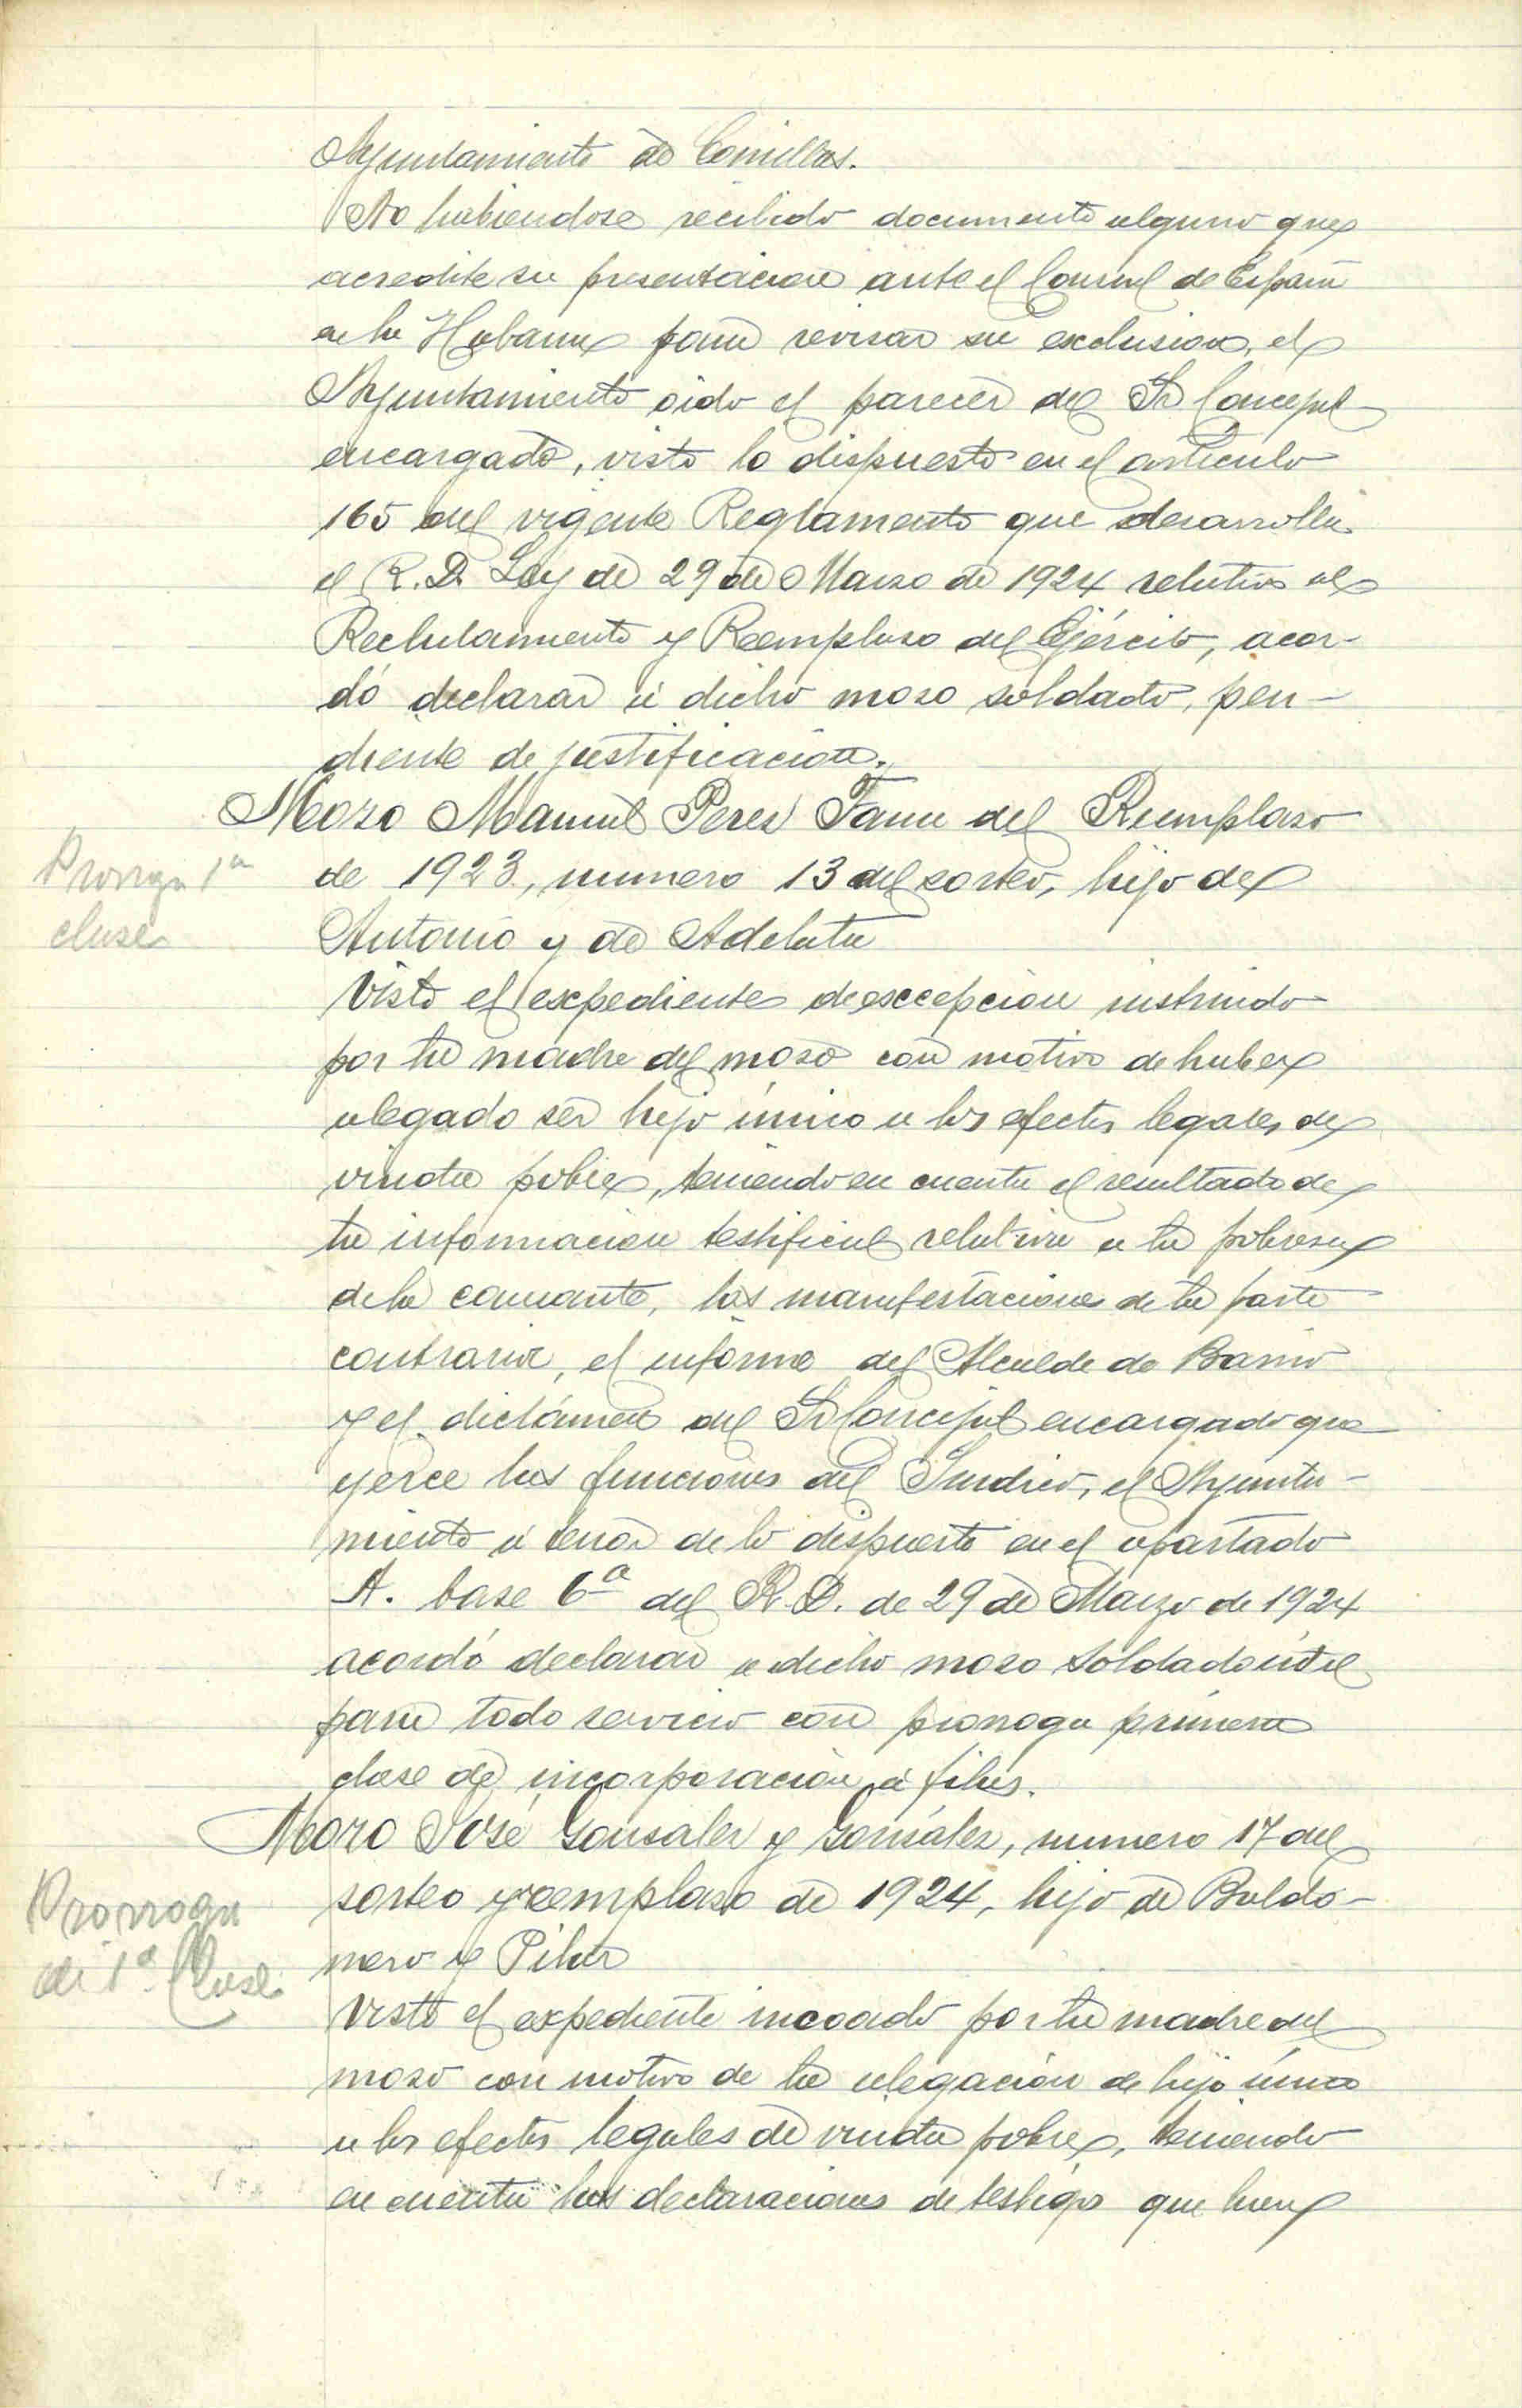 Ayuntamiento de Comillas.
No habiendose recibido documento alguno que
acredite su presentacion ante el Consul de España
en la Habana para revisar su exclusion, el
Ayuntamiento oido el parecer del Sr Concejal
encargado, visto lo dispuesto en el articulo
165 del vigente Reglamento que desarrolla
el R. D. Ley de 29 de Marzo de 1924 relativo al
Reclutamiento y Reemplaso del Ejército, acor-
dó declarar á dicho moso soldado, pen-
diente de justificacion.
Moso Manuel Peres Fana del Reemplaso
Prorroga 1ª
de 1923, numero 13 del sorteo, hijo de
clase
Antonio y de Adelata
Visto el expediente de excepcion instruido
por la madre del moso con motivo de haber
alegado ser hijo único a los efectos legales de
viuda pobre, teniendo en cuenta el resultado de
la informacion testifical relativa a la pobresa
de la causante, las manifestaciones de la parte
contraria, el informe del Alcalde de Barrio
y el dictámen del Sr Concejal encargado que
ejerce las funciones del Sindico, el Ayunta-
miento á tenor de lo dispuesto en el apartado
A. base 6ª del R. D. de 29 de Marzo de 1924
acordó declarar a dicho moso soldado útil
para todo servicio con prorroga primera
clase de incorporación á filas.
Moso José Gonsales y Gonsález, numero 17 del
Prorroga
sorteo y reemplaso de 1924, hijo de Baldo-
de 1ª Clase
mero y Pilar
Visto el expediente incoado por la madre del
moso con motivo de la alegación de hijo único
a los efectos legales de viuda pobre, teniendo
en cuenta las declaraciones de testigos que hacen